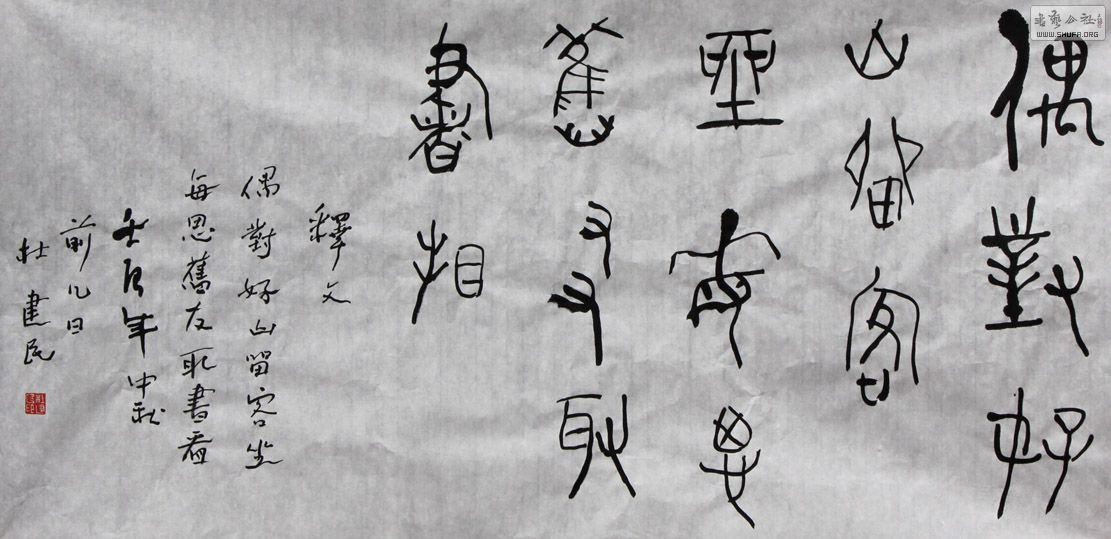 偶對好
山留客
坐每思
舊友取
書相
釋文
偶對好山留客坐
每思舊友取書看
壬辰年中秋
前几日
杜建民
WWW.SHUFA.ORG